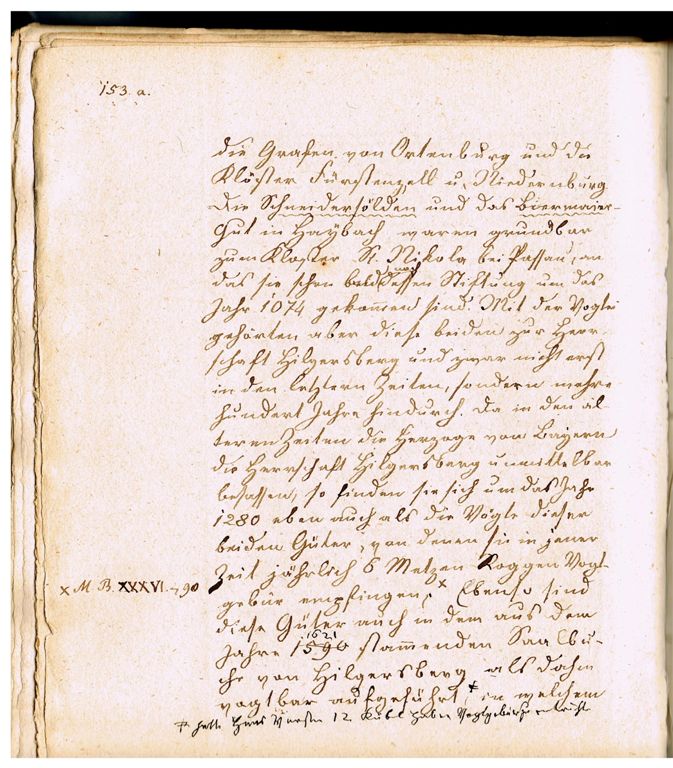 153. a.
die Grafen von Ortenburg und die
Klöster Fürstenzell u. Niedernburg.
Die Schneidersölden und das Biermaier-
Gut in Haÿbach waren grundbar
zum Kloster St. Nikola bei Passau, an
das sie schon bald nach dessen Stiftung um das
Jahr 1074 gekommen sind. Mit der Vogtei
gehörten aber diese beiden zur Herr-
schaft Hilgersberg und zwar nicht erst
in den letztern Zeiten, sondern mehre
hundert Jahre hindurch. Da in den äl-
teren Zeiten die Herzoge von Bayern
die Herrschaft Hilgersberg unmittelbar
besassen, so finden sie sich um das Jahr
1280 eben auch als die Vögte dieser
beiden Güter, von denen sie in jener
Zeit jährlich 6 Metzen Roggen Vogt-
x M. B. XXXVI. 90
gebür empfingen. x Ebenso sind
diese Güter auch in dem aus dem
1621
Jahre 1590 stammenden Saalbu-
che von Hilgersberg als dahin
vogtbar aufgeführt, ‡ in welchem
‡ hatte Hans 12 Haber Vogtgebühr